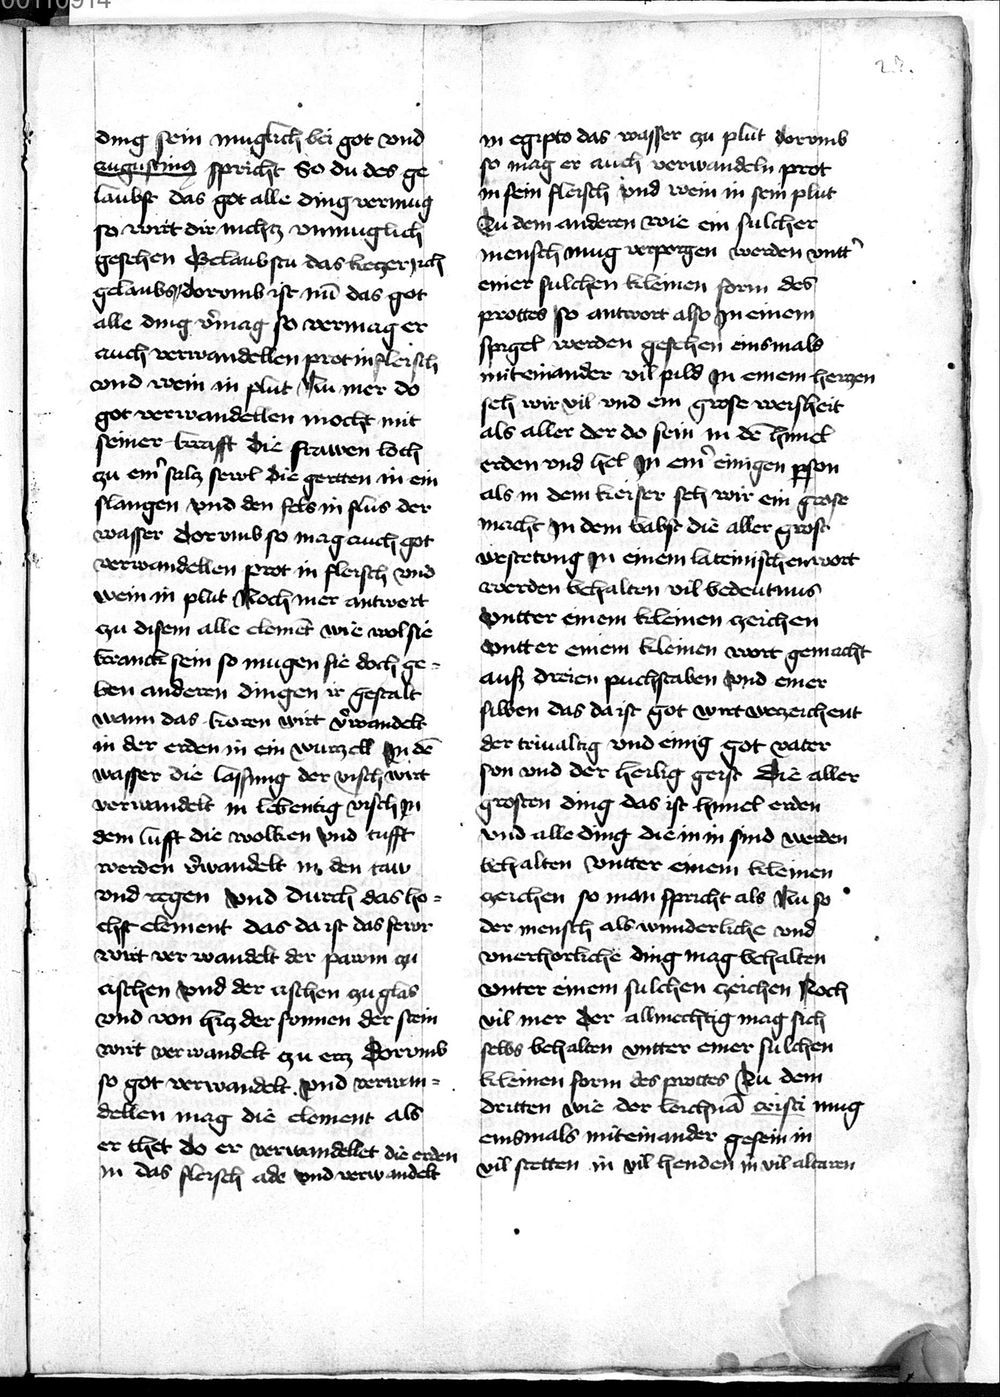 00110914
27.
ding sein muglich bei got vnd
augustinus spricht So du des ge
laubst das got alle ding vermug
so wirt dir nichtz vnmuglich
geschen Gelaubstu das ketzer ich
gelaubs dorvmb ist nu̅ das got
alle ding v̓mag so vermag er
auch verwandellen prot in fleisch
vnd wein in plut Nu mer do
got verwandellen mocht mit
seiner krafft die frawen loch
zu eim̓ saltz die gertten in ein
slangen vnd den fels in flus der
wasser dorvmb so mag auch got
verwandellen prot in fleisch vnd
wein in plut Noch mer antwort
zu disem alle element wie wol sie
kranck sein so mugen sie doch ge=
ben anderen dingen ir gestalt
wann das koren wirt v̓wandelt
in der erden in ein wurzell In de̅
wasser die lassung der visch wirt
verwandelt in lebentig visch In
dem lufft die wolken vnd tufft
werden v̓wandelt in den taw
vnd regen vnd durch das ho=
chst element das da ist das fewr
wirt ver wandelt der pawm zu
aschen vnd der aschen zu glas
vnd von hitz der sonnen der stein
wirt verwandelt zu ertz Dorvmb
so got verwandelt vnd verwan=
dellen mag die element als
er thet do er verwandellet die erden
in das fleisch ade vnd verwandelt
in egipto das wasser zu plut dorvmb
so mag er auch verwandeln prot
in sein fleisch vnd wein in sein plut
Zu dem anderen wie ein sulcher
mensch mug verporgen werden vntt̓
einer sulchen kleinen form des
prottes so antwort also In einem
spigel werden gesehen einsmals
miteinander vil pild In einem hertzen
seh wir vil vnd ein grose weisheit
als aller der do sein in de̅ himel
erden vnd hel In eim̓ einigen person
als in dem keiser seh wir ein grose
macht In dem babst die aller grost
In einem lateinischen wort
werden behalten vil bedeutnus
vntter einem kleinen zeichen
vntter einem kleinen wort gemacht
ausz dreien puchstaben vnd einer
silben das da ist got wirt verzeichent
der trivaltig vnd einig got vater
son vnd der heilig geist Die aller
grosten ding das ist himel erden
vnd alle ding die in in sind werden
behalten vntter einem kleinen
zeichen so man spricht als Nu so
der mensch als wunderliche vnd
vnerhorliche ding mag behalten
vnter einem sulchen zeichen Noch
vil mer der allmechtig mag sich
selbs behalten vntter einer sulchen
kleinen form des prottes Zu dem
dritten wie der leichna̅ cristi mug
einsmals miteinander gesein in
vil stetten in vil henden in vil altaren